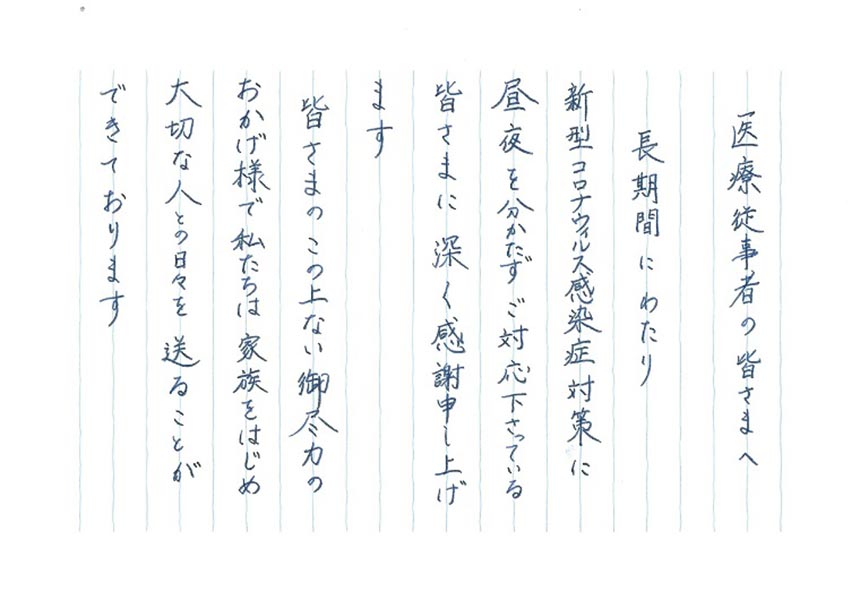 医療従事者の皆さまへ
長期間にわたり
新型コロナウィルス感染症対策に
昼夜を分かたず ご対応下さっている
皆さまに 深く感謝申し上げ
ます
皆さまの この上ない御尽力の
おかげ様で 私たちは 家族をはじめ
大切な人との日々を 送ることが
できております